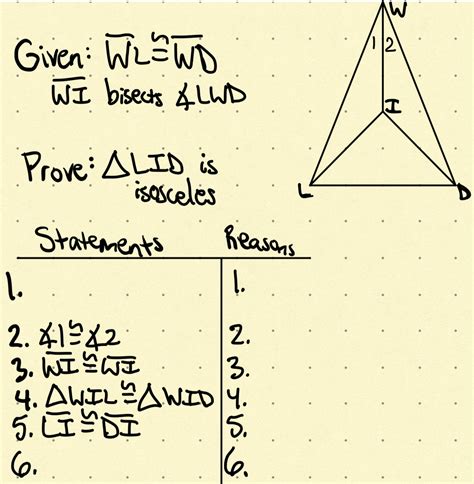 Given: WL ≅ WD
WI bisects ∡LWD
Prove: △LID is
isosceles
W
1 2
I
L D
Statements Reasons
1. 1.
2. ∡1≅∡2 2.
3. WI≅WI 3.
4. △WIL≅△WID 4.
5. LI≅DI 5.
6. 6.